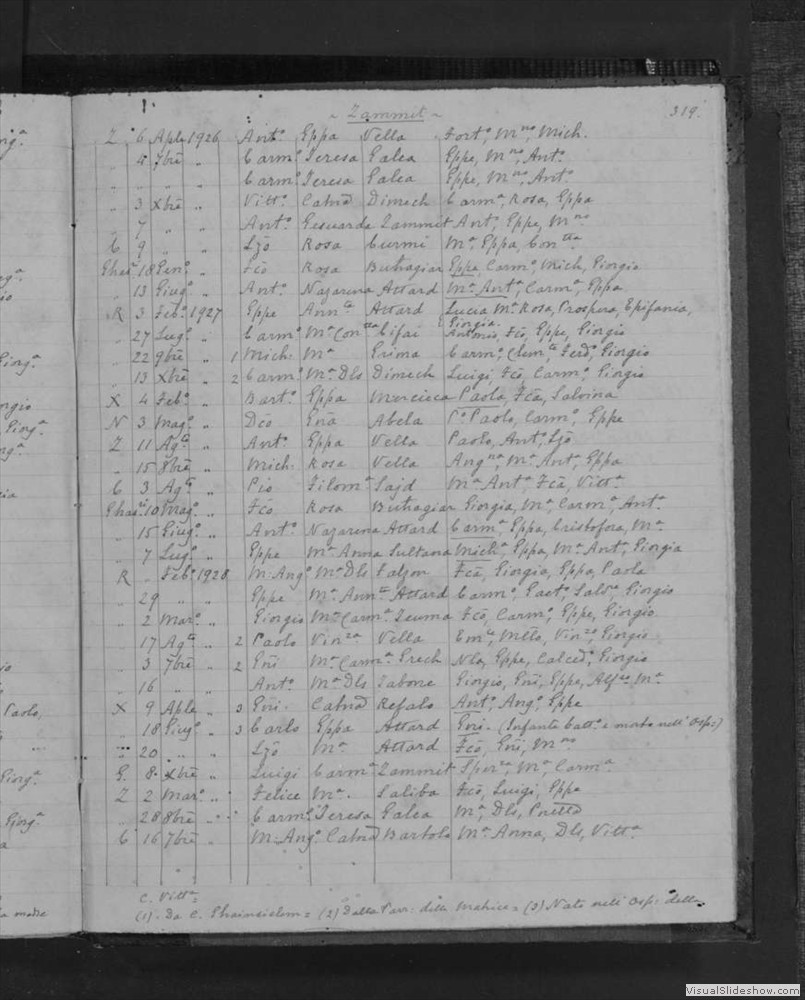 ~ Zammit ~ 319.
Z 6 Aple 1926 Ant.º Eppa Vella Fort.º, M.no, Mich.
„ 4 7bre „ Carm.º Teresa Galea Eppe, M.no, Ant.º
„ „ „ „ Carm.º Teresa Galea Eppe, M.no, Ant.º
„ 3 Xbre „ Vitt.º Catna Dimech Carm.ª, Rosa, Eppa
„ 7 „ „ Ant.º Gesuarda Zammit Ant.º, Eppe, M.no
C 9 „ „ Lzo Rosa Curmi M.ª, Eppa, Con.tta
Ghas.r 18 Gen.º „ Fco Rosa Buttagiar Eppe, Carm.º, Mich, Giorgio
„ 13 Giug.º „ Ant.º Nazarena Attard M.ª Ant.ª, Carm.ª, Eppa
R 3 Feb.º 1927 Eppe Ann.ta Attard Lucia M.ª Rosa, Prospera, Epifania,
Giorgia.
„ 27 Lug.º „ Carm.º M.ª Con.tta Cifai Antonio, Fco, Eppe, Giorgio
„ 22 9bre „ 1 Mich. M.ª Grima Carm.º, Clem.te, Ferd.º, Giorgio
„ 13 Xbre „ 2 Carm.º M.ª Dls Dimech Luigi, Fco, Carm.º, Giorgio
X 4 Feb.º „ Bart.º Eppa Mercieca Paola, Fca, Salvina
N 3 Mag.º „ Dco Gna Abela P.º Paolo, Carm.º, Eppe
Z 11 Ag.to „ Ant.º Eppa Vella Paolo, Ant.º, Lzo
„ 15 8bre „ Mich. Rosa Vella Ang.na, M.ª Ant.ª, Eppa
C 3 Ag.to „ Pio Filom.ª Sajd M.ª Ant.ª, Fca, Vitt.ª
Ghas.r 10 Mag.º „ Fco Rosa Buttagiar Giorgia, M.ª, Carm.ª, Ant.ª
„ 15 Giug.º „ Ant.º Nazarena Attard Carm.ª, Eppa, Cristofora, M.ª
„ 7 Lug.º „ Eppe M.ª Anna Sultana Mich., Eppa, M.ª Ant.ª, Giorgia
R „ Feb.º 1928 M. Ang.º M.ª Dls Falzon Fca, Giorgia, Eppa, Paola
„ 29 „ „ Eppe M.ª Ann.ta Attard Carm.º, Gaet.º, Salv.e, Giorgio
„ 2 Mar.º „ Giorgio M.ª Carm.ª Zeuma Fco, Carm.º, Eppe, Giorgio
„ 17 Ag.to „ 2 Paolo Vin.za Vella Em.le, Giorgio
„ 3 7bre „ 2 Gni M.ª Carm.ª Grech Nla, Eppe, Calced.º, Giorgio
„ 16 „ „ Ant.º M.ª Dls Tabone Giorgio, Gni, Eppe, Alf.so M.ª
X 9 Aple „ 3 Gni. Catna Refalo Ant.º, Ang.º, Eppe
„ 18 Giug.º „ 3 Carlo Eppa Attard Gni. (Infante batt.º e morto nell' Osp:)
„ 20 „ „ Lzo M.ª Attard Fco, Gni, M.no
G. 8 Xbre „ Luigi Carm.ª Zammit Sper.za, M.ª, Carm.ª
Z 2 Mar.º „ Felice M.ª Saliba Fco, Luigi, Eppa
„ 28 8bre „ Carm.º Teresa Galea M.ª, Dls,
C 16 7bre „ M. Ang.º Catna Bartolo M.ª Anna, Dls, Vitt.ª
C. Vitt.ª
(1) Da C. Ghainsielem = (2) Dalla Parr: della Matrice = (3) Nato nell' Osp: della
ng.ª
Giorg.ª
Paolo,
Giorg.ª
Giorg.ª
madre
VisualSlideshow.com